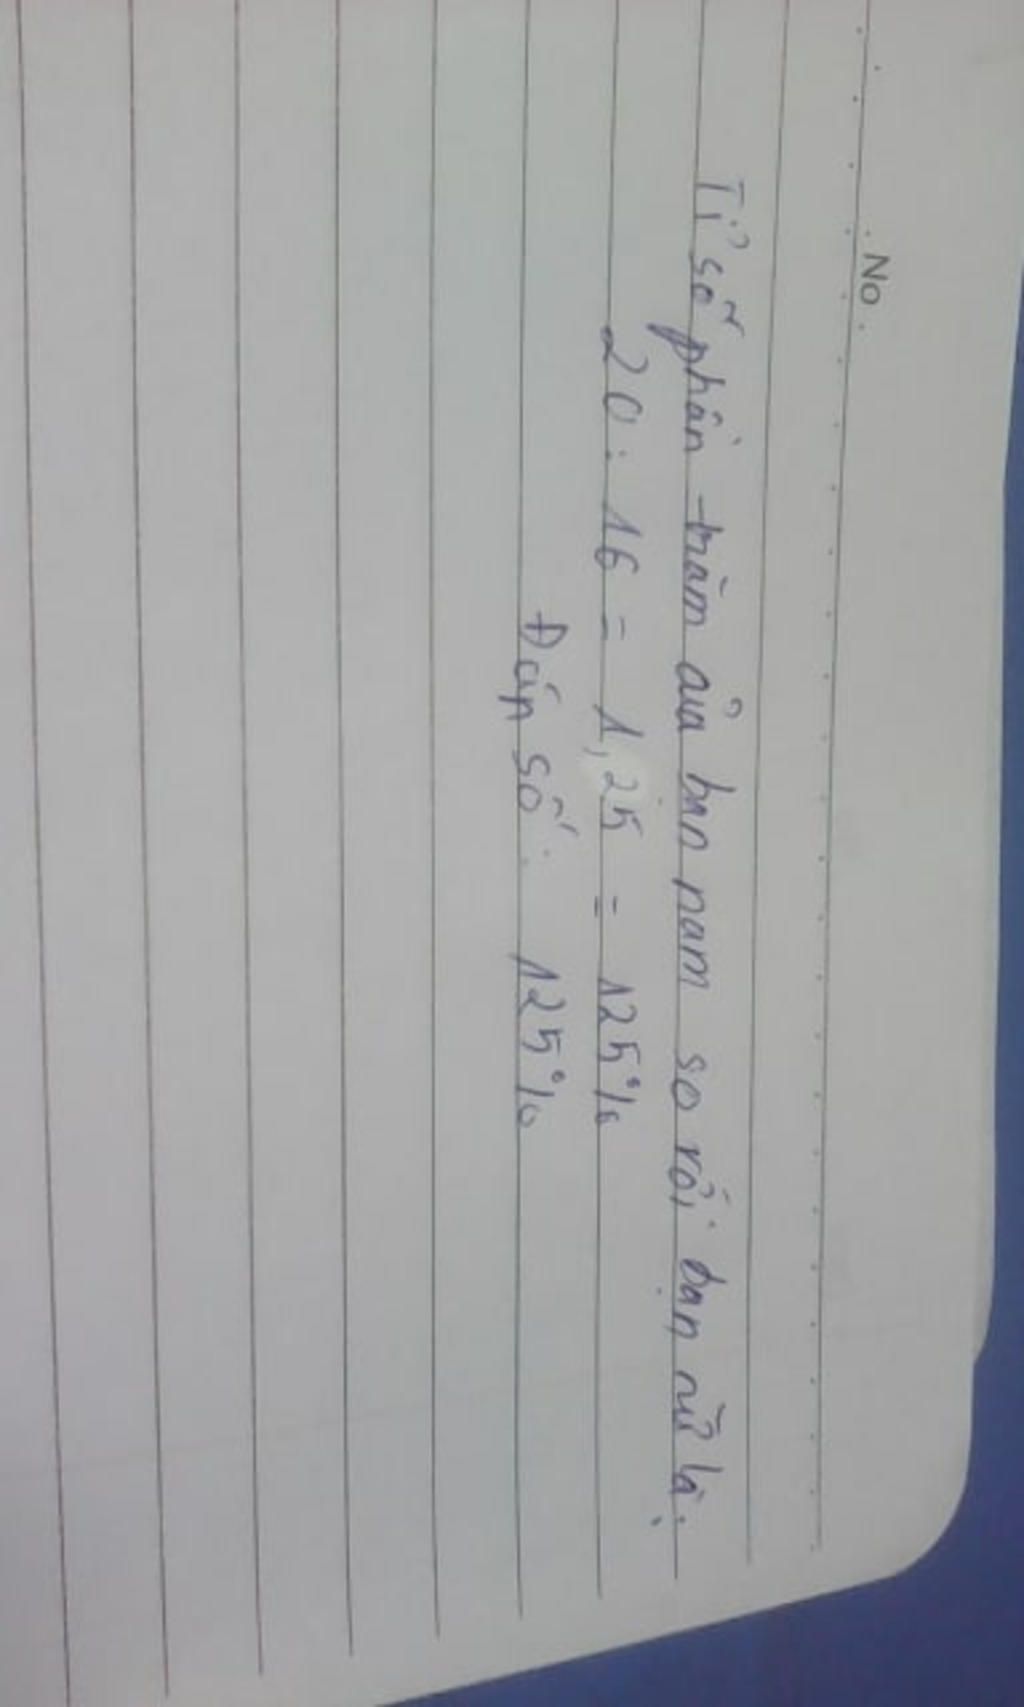 No.
Tỉ số phần trăm của bạn nam so với bạn nữ là:
20 : 16 = 1,25 = 125%
Đáp số: 125%